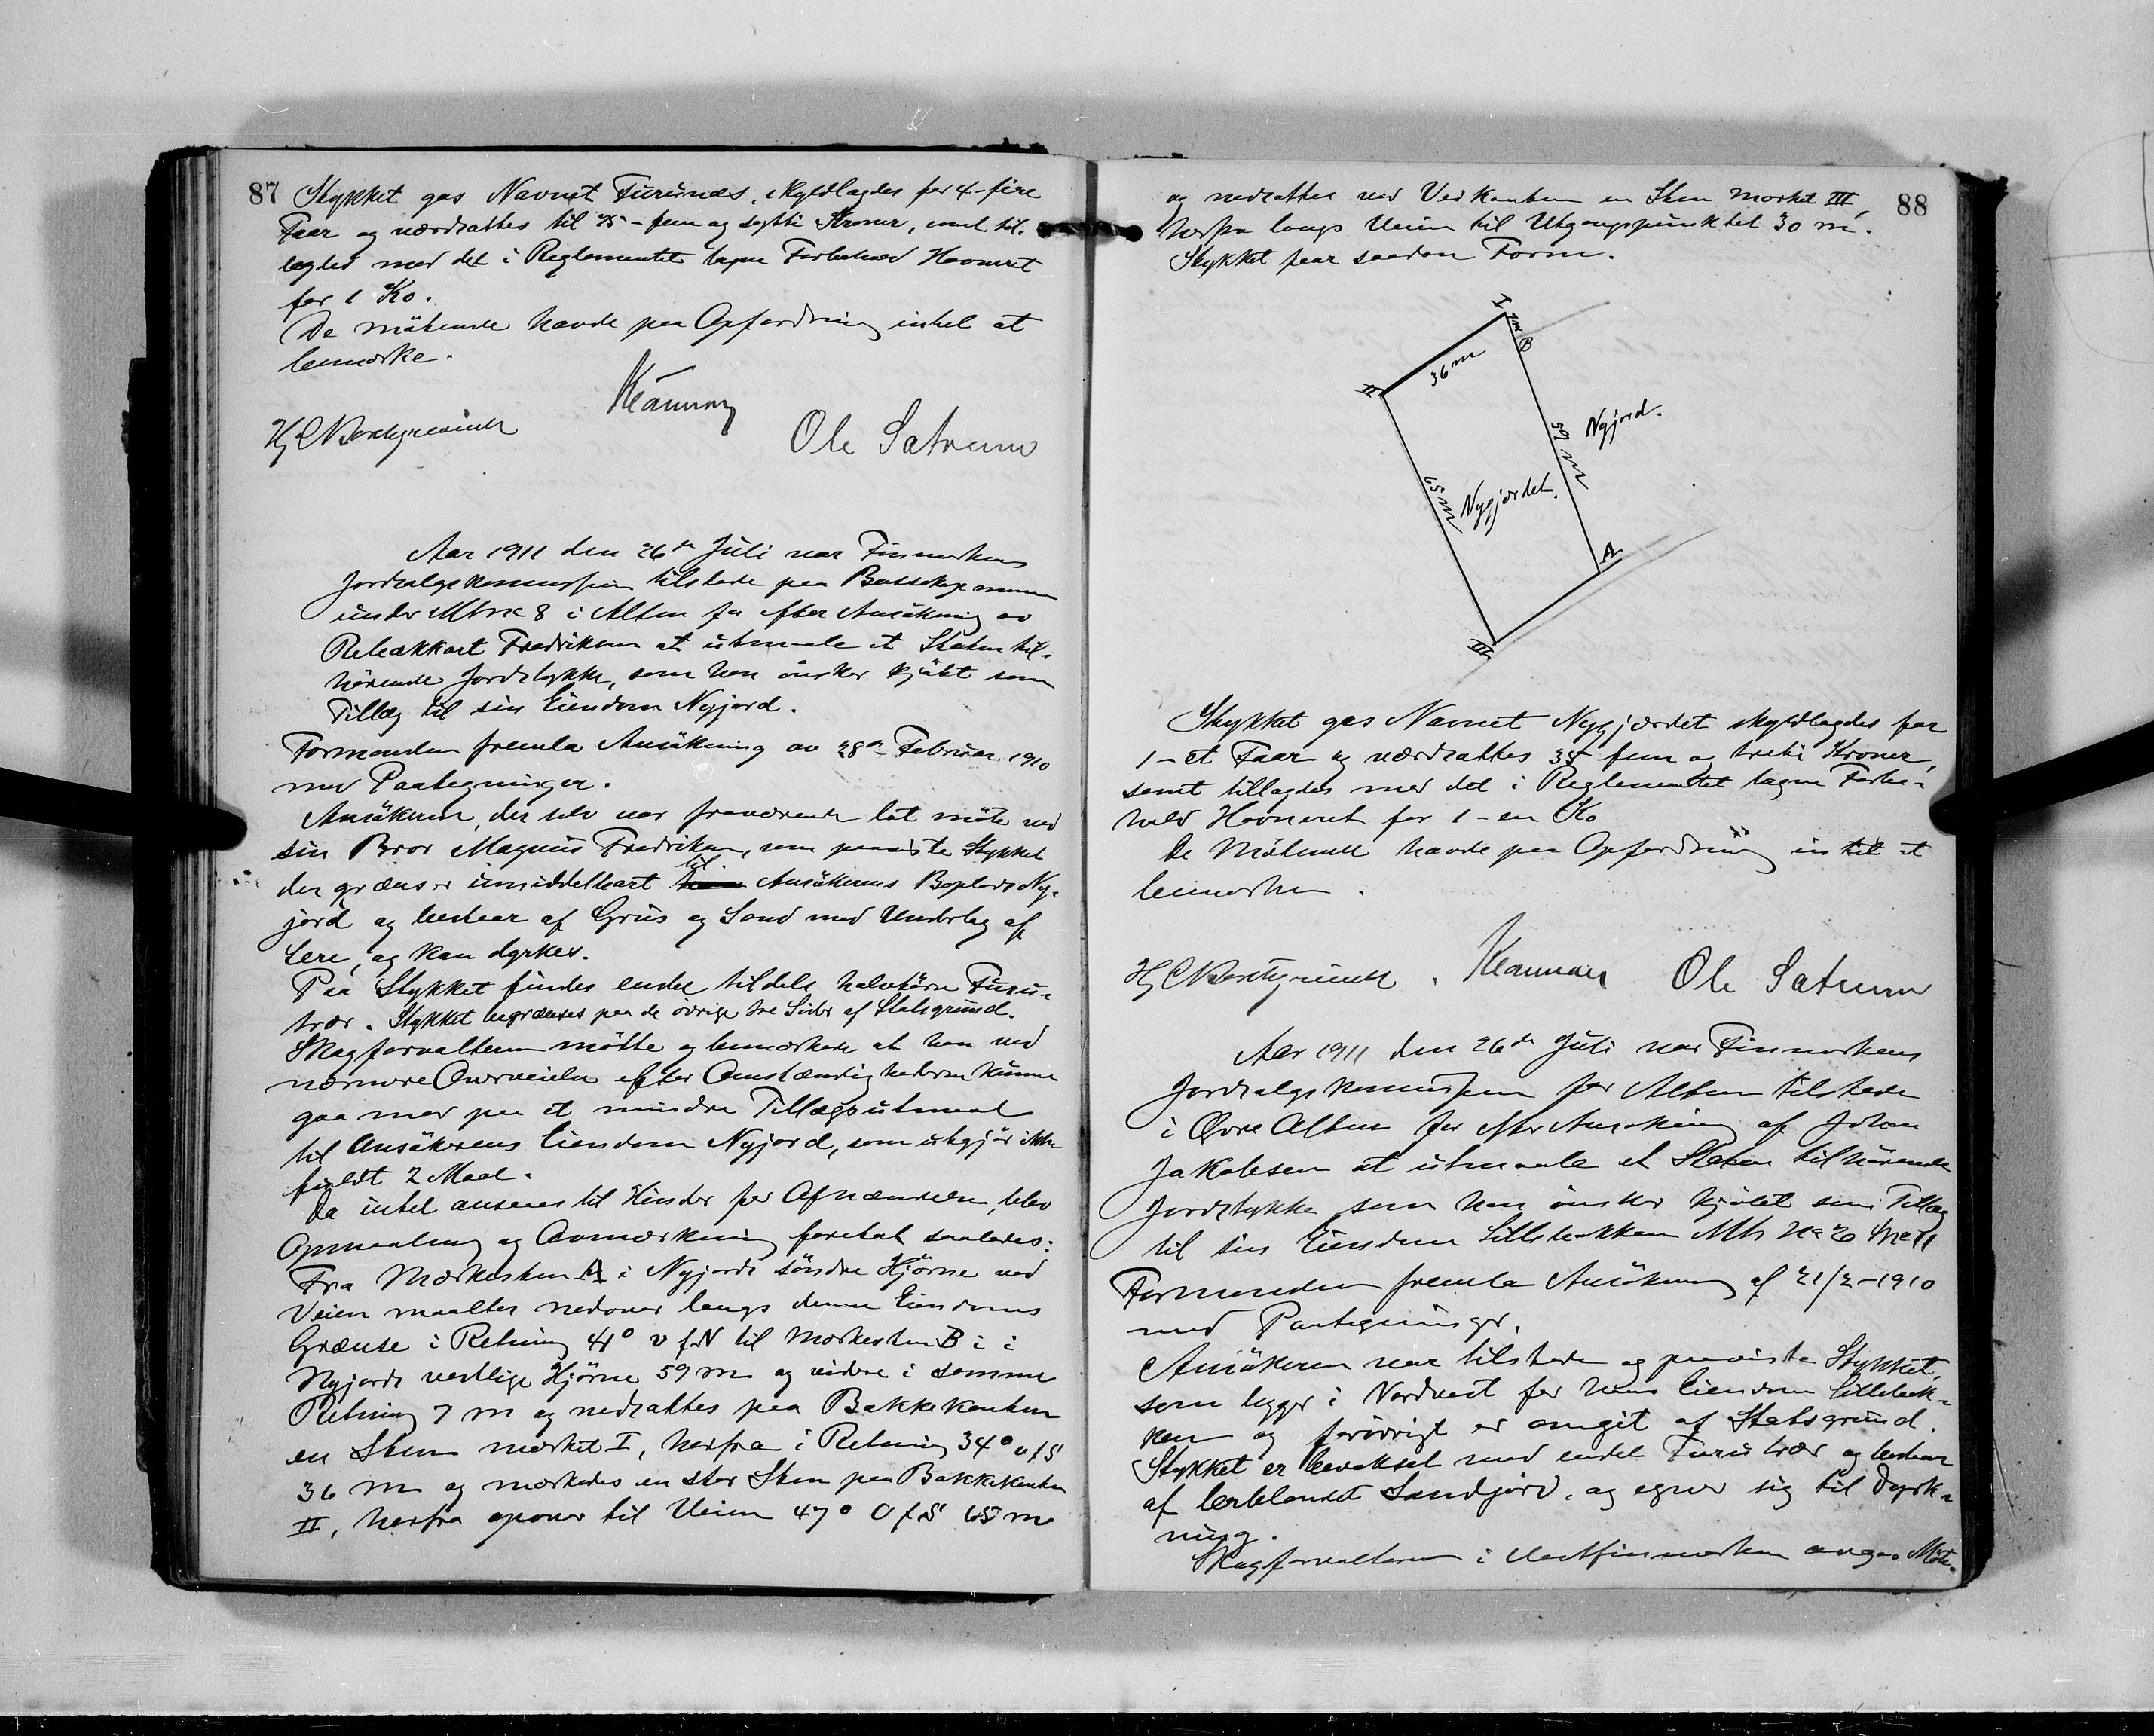 87
Stykket gas Navnet Furunæs, skyldlagdes for 4-fire
Faar og værdsattes til 75 - fem og sytti Kroner, samt til-
lagdes med det i Reglementet tagne Forbehold Havneret
for 1 Ko.
De mötende havde paa Opfordring intet at
bemærke.
Ole Satrum
Aar 1911 den 26de Juli var Finmarkens
Jordsalgskommission tilstede paa Bossekop
under Mtr No 8 i Alten for efter Ansökning av
Fredriksen at utmaale et Staten til-
hörende Jordstykke, som han önsker kjöbt som
Tillæg til sin Eiendom Nyjord.
Formanden fremla Ansökning av 28de Februar 1910
med Paategninger.
Ansökeren, der selv var fraværende lot möte ved
sin Bror Magnus Fredriksen, som paaviste Stykket
der grænser umiddelbart til Ansökerens Boplads Ny-
jord og bestaar af Grus og Sand med Underlag af
Lere, og kan dyrkes.
Paa Stykket findes endel tildels halvtörre Furu-
trær. Stykket begrænses paa de övrige tre Sider af Statsgrund.
Skogforvalteren mötte og bemærkede at han ved
nærmere Overveielse efter Omstændighederne kunne
gaa med paa et mindre Tillægsutmaal
til Ansökerens Eiendom Nyjord, som utgjör ikke
fuldt 2 Maal.
Da intet ansees til Hinder for Afhændelse, blev
Opmaaling og Avmærkning foretat saaledes:
Fra Mærkesten A i Nyjords söndre Hjörne ved
Veien maaltes nedover langs denne Eiendoms
Grænse i Retning 41° v f N til Mærkesten B i i
Nyjords vestlige Hjörne 59 m og videre i samme
Retning 7 m og nedsattes paa Bakkekanten
en Sten mærket I, herfra i Retning 34° v f S
36 m og mærkedes en stor Sten paa Bakkekanten
II, herfra opover til Veien 47° O f S 65 m
88
og nedsattes ved Veikanten en Sten mærket III,
herfra langs Veien til Utgangspunktet 30 m.
Stykket faar saadan Form.
I
7 m
B
36 m
II
59 m
Nyjord.
65 m
Nygjærdet.
A
III
Stykket gas Navnet Nygjærdet skyldlagdes for
1 - et Faar og værdsattes 35 fem og treti Kroner,
samt tillagdes med det i Reglementet tagne Forbe-
hold Havneret for 1 - en Ko
De Mötende havde paa Opfordring intet at
bemærke.
Ole Satrum
Aar 1911 den 26de Juli var Finmarkens
Jordsalgskommission for Alten tilstede
i Øvre Alten for efter Ansökning af Johan
Jakobsen at utmaale et Staten tilhörende
Jordstykke som han önsker kjöbt som Tillæg
til sin Eiendom Lillebakken Mtr No 20
Formanden fremla Ansökning af 21/2-1910
med Paategninger.
Ansökeren var tilstede og paaviste Stykket,
som ligger i Nordvest for hans Eiendom Lillebak-
ken og forövrigt er omgit af Statsgrund.
Stykket er bevokset med endel Furutrær og bestaar
af lerblandet Sandjord, og egner sig til Dyrk-
ning.
Skogforvalteren i Vestfinmarken avgav Möte-